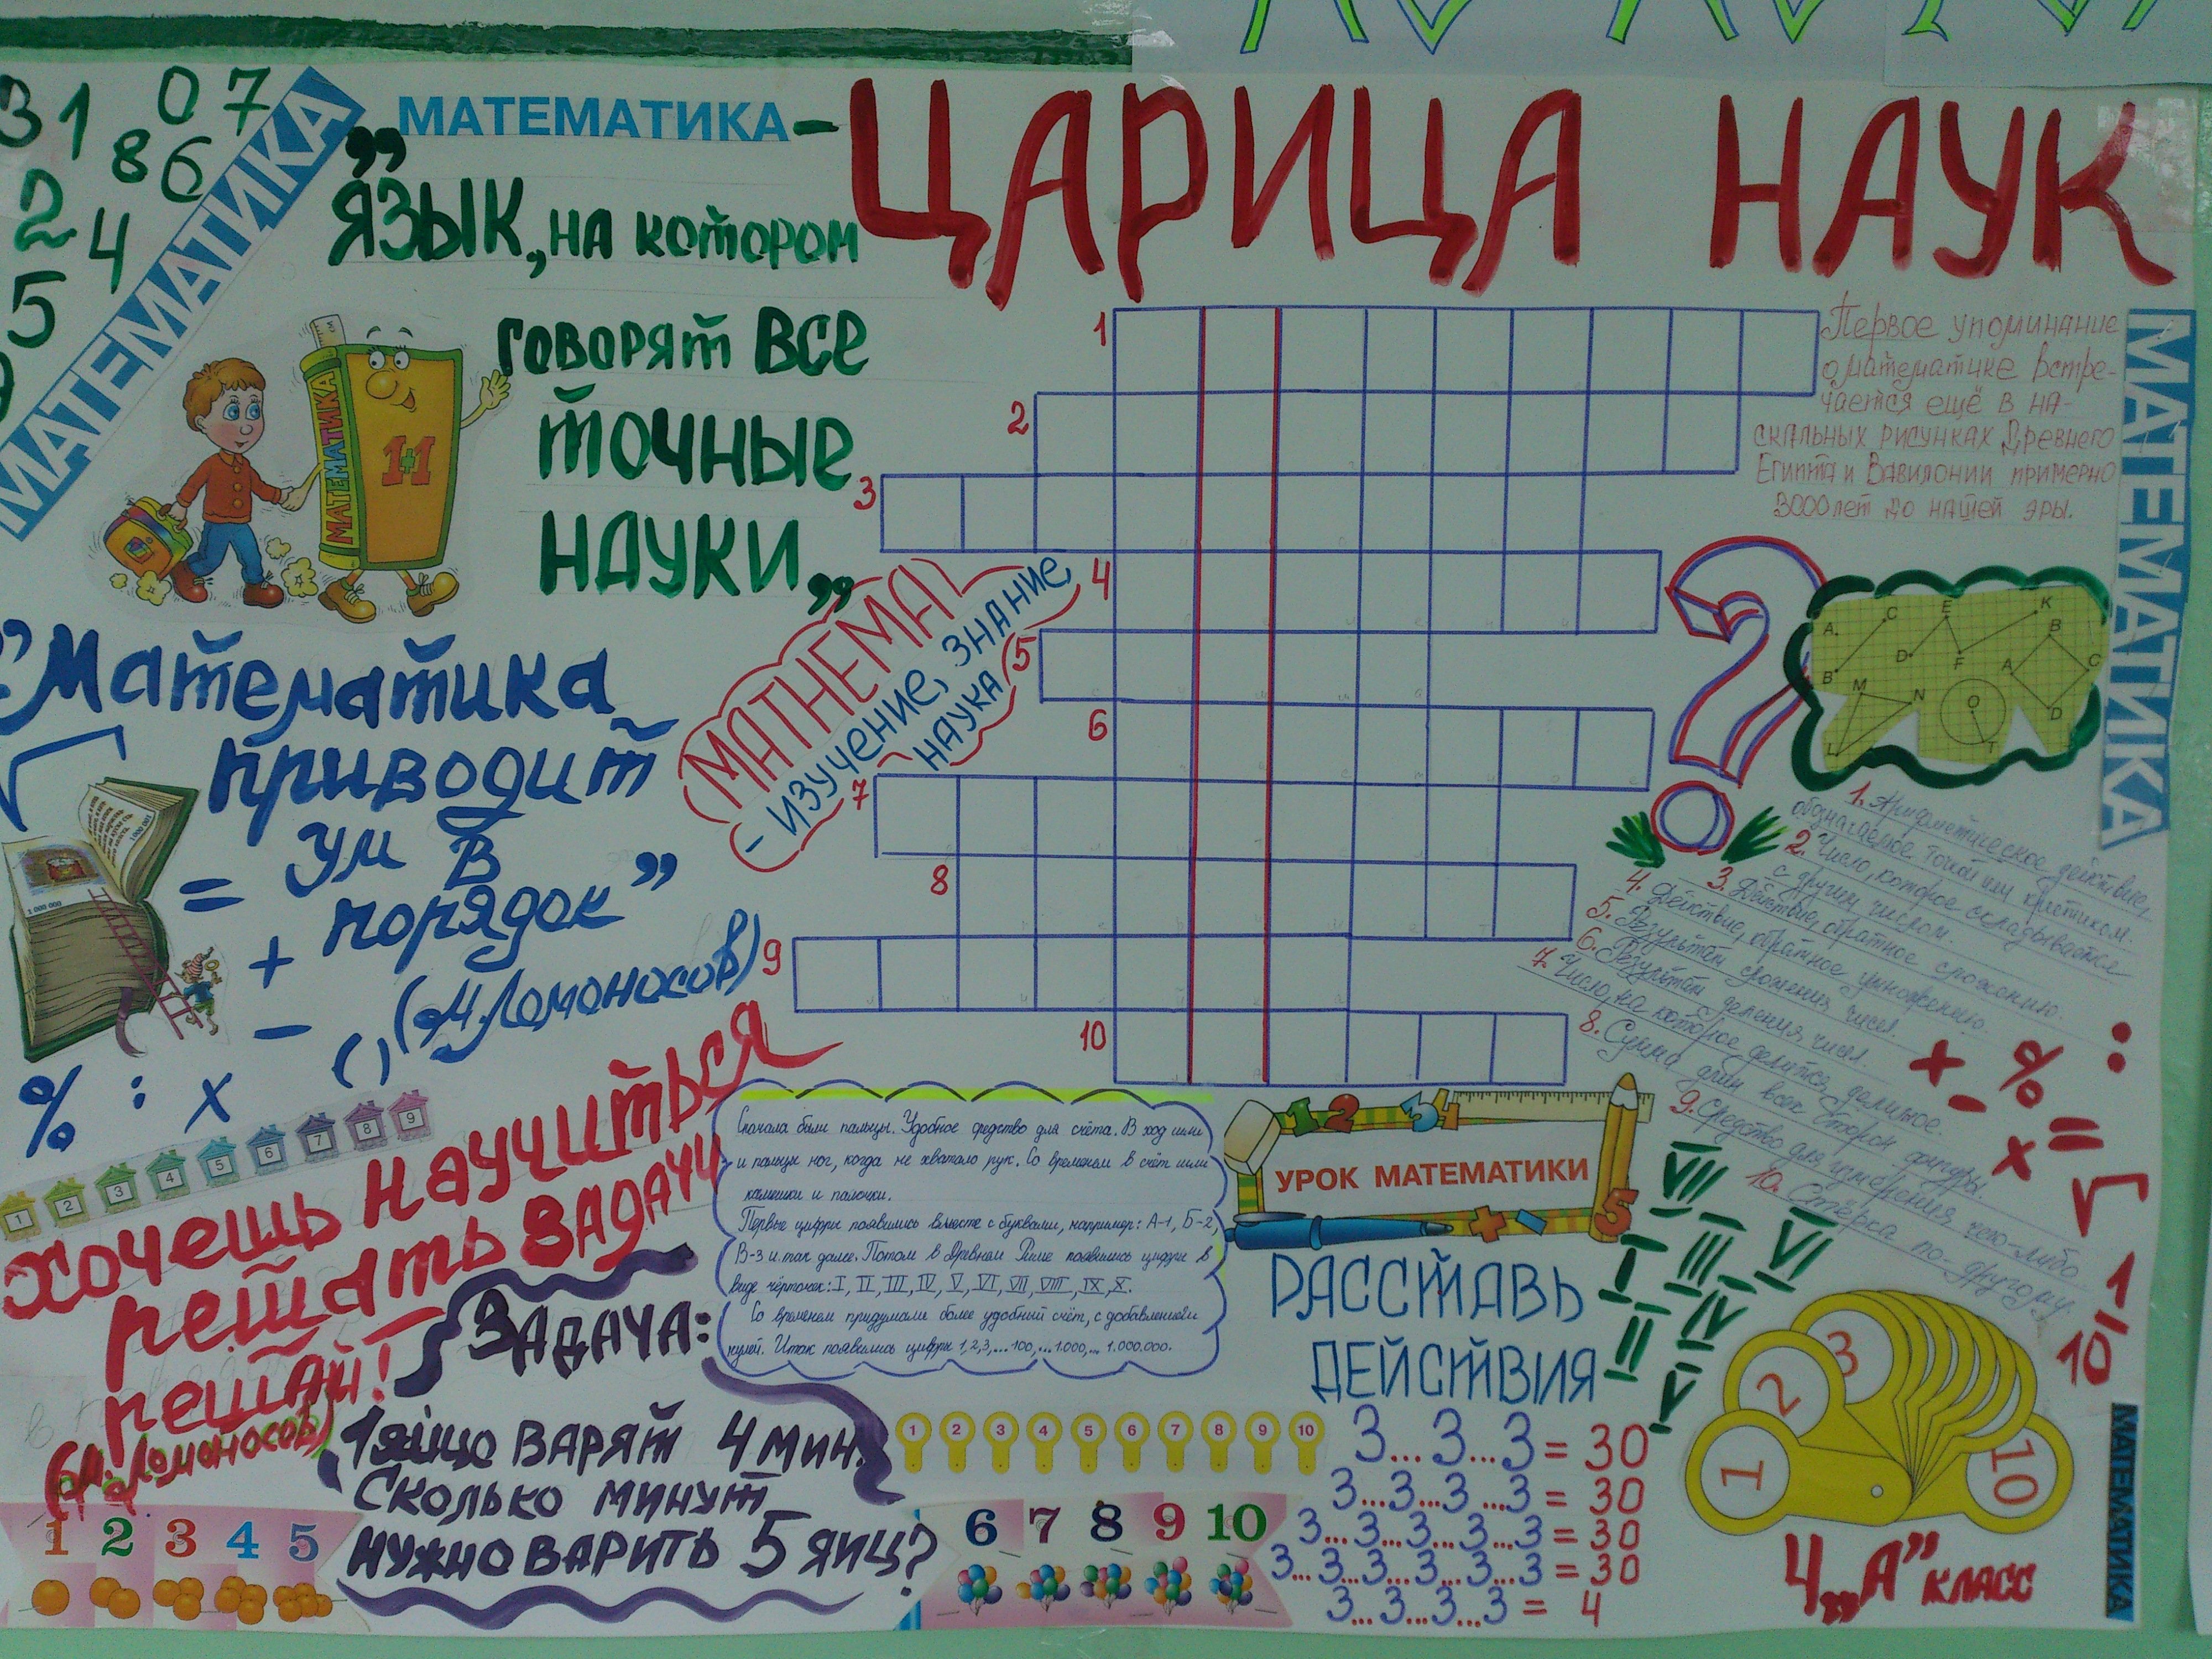 МАТЕМАТИКА – ЦАРИЦА НАУК
3 1 0 7
8 6
2 4
5
МАТЕМАТИКА
„ЯЗЫК, на котором
говорят все
точные
науки„
МАТЕМАТИКА
1+1
"Математика
приводит
= ум в
+ порядок"
– ( ) (М. Ломоносов)
% : х
1 000 001
1 000 000
MATHEMA
- изучение, знание,
наука
1
2
3
4
5
6
7
8
9
10
Первое упоминание
о математике встре-
чается ещё в на-
скальных рисунках Древнего
Египта и Вавилонии примерно
3000 лет до нашей эры.
МАТЕМАТИКА
A C E K
B D F A B C
M N O D
L T
1. Арифметическое действие,
обозначаемое точкой или крестиком.
2. Число, которое складывается
с другим числом.
3. Действие, обратное сложению.
4. Действие, обратное умножению.
5. Результат сложения чисел.
6. Результат деления чисел.
7. Число, на которое делится делимое.
8. Сумма длин всех сторон фигуры.
9. Средство для измерения чего-либо
10. Стёрка по-другому.
+ - % : = х √
1/10
1 2 3 4 5 6 7 8 9
Хочешь научиться
решать задачи
решай!
(М. Ломоносов)
Сначала были пальцы. Удобное средство для счёта. В ход шли
и пальцы ног, когда не хватало рук. Со временем в счёт шли
камешки и палочки.
Первые цифры появились вместе с буквами, например: А-1, Б-2,
В-3 и так далее. Потом в Древнем Риме появились цифры в
виде чёрточек: I, II, III, IV, V, VI, VII, VIII, IX, X.
Со временем придумали более удобный счёт, с добавлением
нулей. Итак появились цифры 1,2,3,... 100,... 1.000,... 1.000.000.
1 2 3 4
УРОК МАТЕМАТИКИ
5
VII
I III VI
II IV
V
Задача:
1 яйцо варят 4 мин.
Сколько минут
нужно варить 5 яиц?
1 2 3 4 5
1 2 3 4 5 6 7 8 9 10
6 7 8 9 10
РАССТАВЬ
ДЕЙСТВИЯ
3...3...3 = 30
3...3...3...3 = 30
3...3...3...3...3 = 30
3...3...3...3...3...3 = 30
3...3...3...3 = 4
1 2 3 10
4 „А" класс
МАТЕМАТИКА